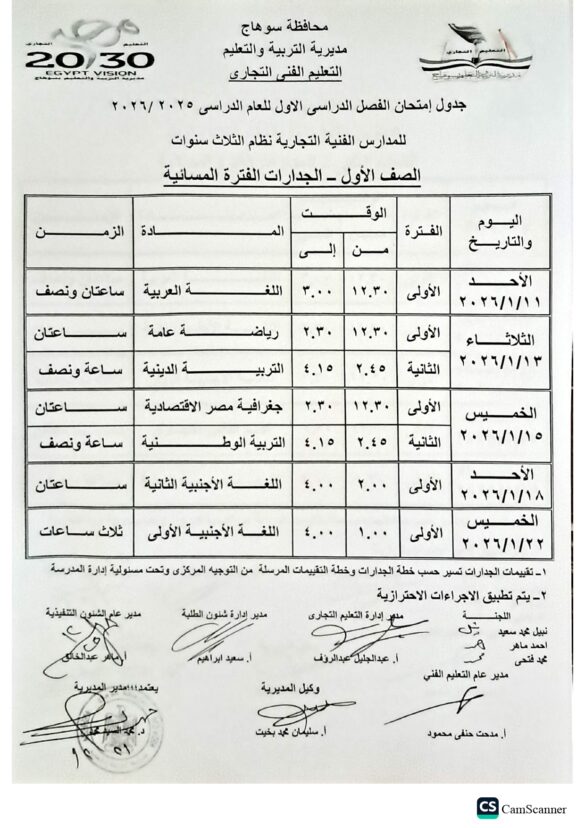 محافظة سوهاج
مديرية التربية والتعليم
التعليم الفنى التجارى
التعليم التجارى
20/30
EGYPT VISION
مديرية التربية والتعليم بسوهاج
جدول إمتحان الفصل الدراسى الاول للعام الدراسى ٢٠٢٥ /٢٠٢٦
للمدارس الفنية التجارية نظام الثلاث سنوات
الصف الأول – الجدارات الفترة المسائية
اليوم والتاريخ الفترة الوقت المادة الزمن
من إلى
الأحد ٢٠٢٦/١/١١ الأولى ١٢.٣٠ ٣.٠٠ اللغة العربية ساعتان ونصف
الثلاثاء ٢٠٢٦/١/١٣ الأولى ١٢.٣٠ ٢.٣٠ رياضة عامة ساعتان
الثانية ٢.٤٥ ٤.١٥ التربية الدينية ساعة ونصف
الخميس ٢٠٢٦/١/١٥ الأولى ١٢.٣٠ ٢.٣٠ جغرافية مصر الاقتصادية ساعتان
الثانية ٢.٤٥ ٤.١٥ التربية الوطنية ساعة ونصف
الأحد ٢٠٢٦/١/١٨ الأولى ٢.٠٠ ٤.٠٠ اللغة الأجنبية الثانية ساعتان
الخميس ٢٠٢٦/١/٢٢ الأولى ١.٠٠ ٤.٠٠ اللغة الأجنبية الأولى ثلاث ساعات
١ـ تقييمات الجدارات تسير حسب خطة الجدارات وخطة التقييمات المرسلة من التوجيه المركزى وتحت مسئولية إدارة المدرسة
٢ـ يتم تطبيق الاجراءات الاحترازية
اللجنة مدير إدارة التعليم التجارى مدير إدارة شئون الطلبة مدير عام الشئون التنفيذية
نبيل محمد سعيد
احمد ماهر
محمد فتحى أ. عبدالجليل عبدالرؤف أ. سعيد ابراهيم أ. ماهر عبدالخالق
مدير عام التعليم الفني وكيل المديرية يعتمد،،، مدير المديرية
أ. مدحت حنفى محمود أ. سليمان محمد بخيت د. محمد السيد محمد
CS CamScanner